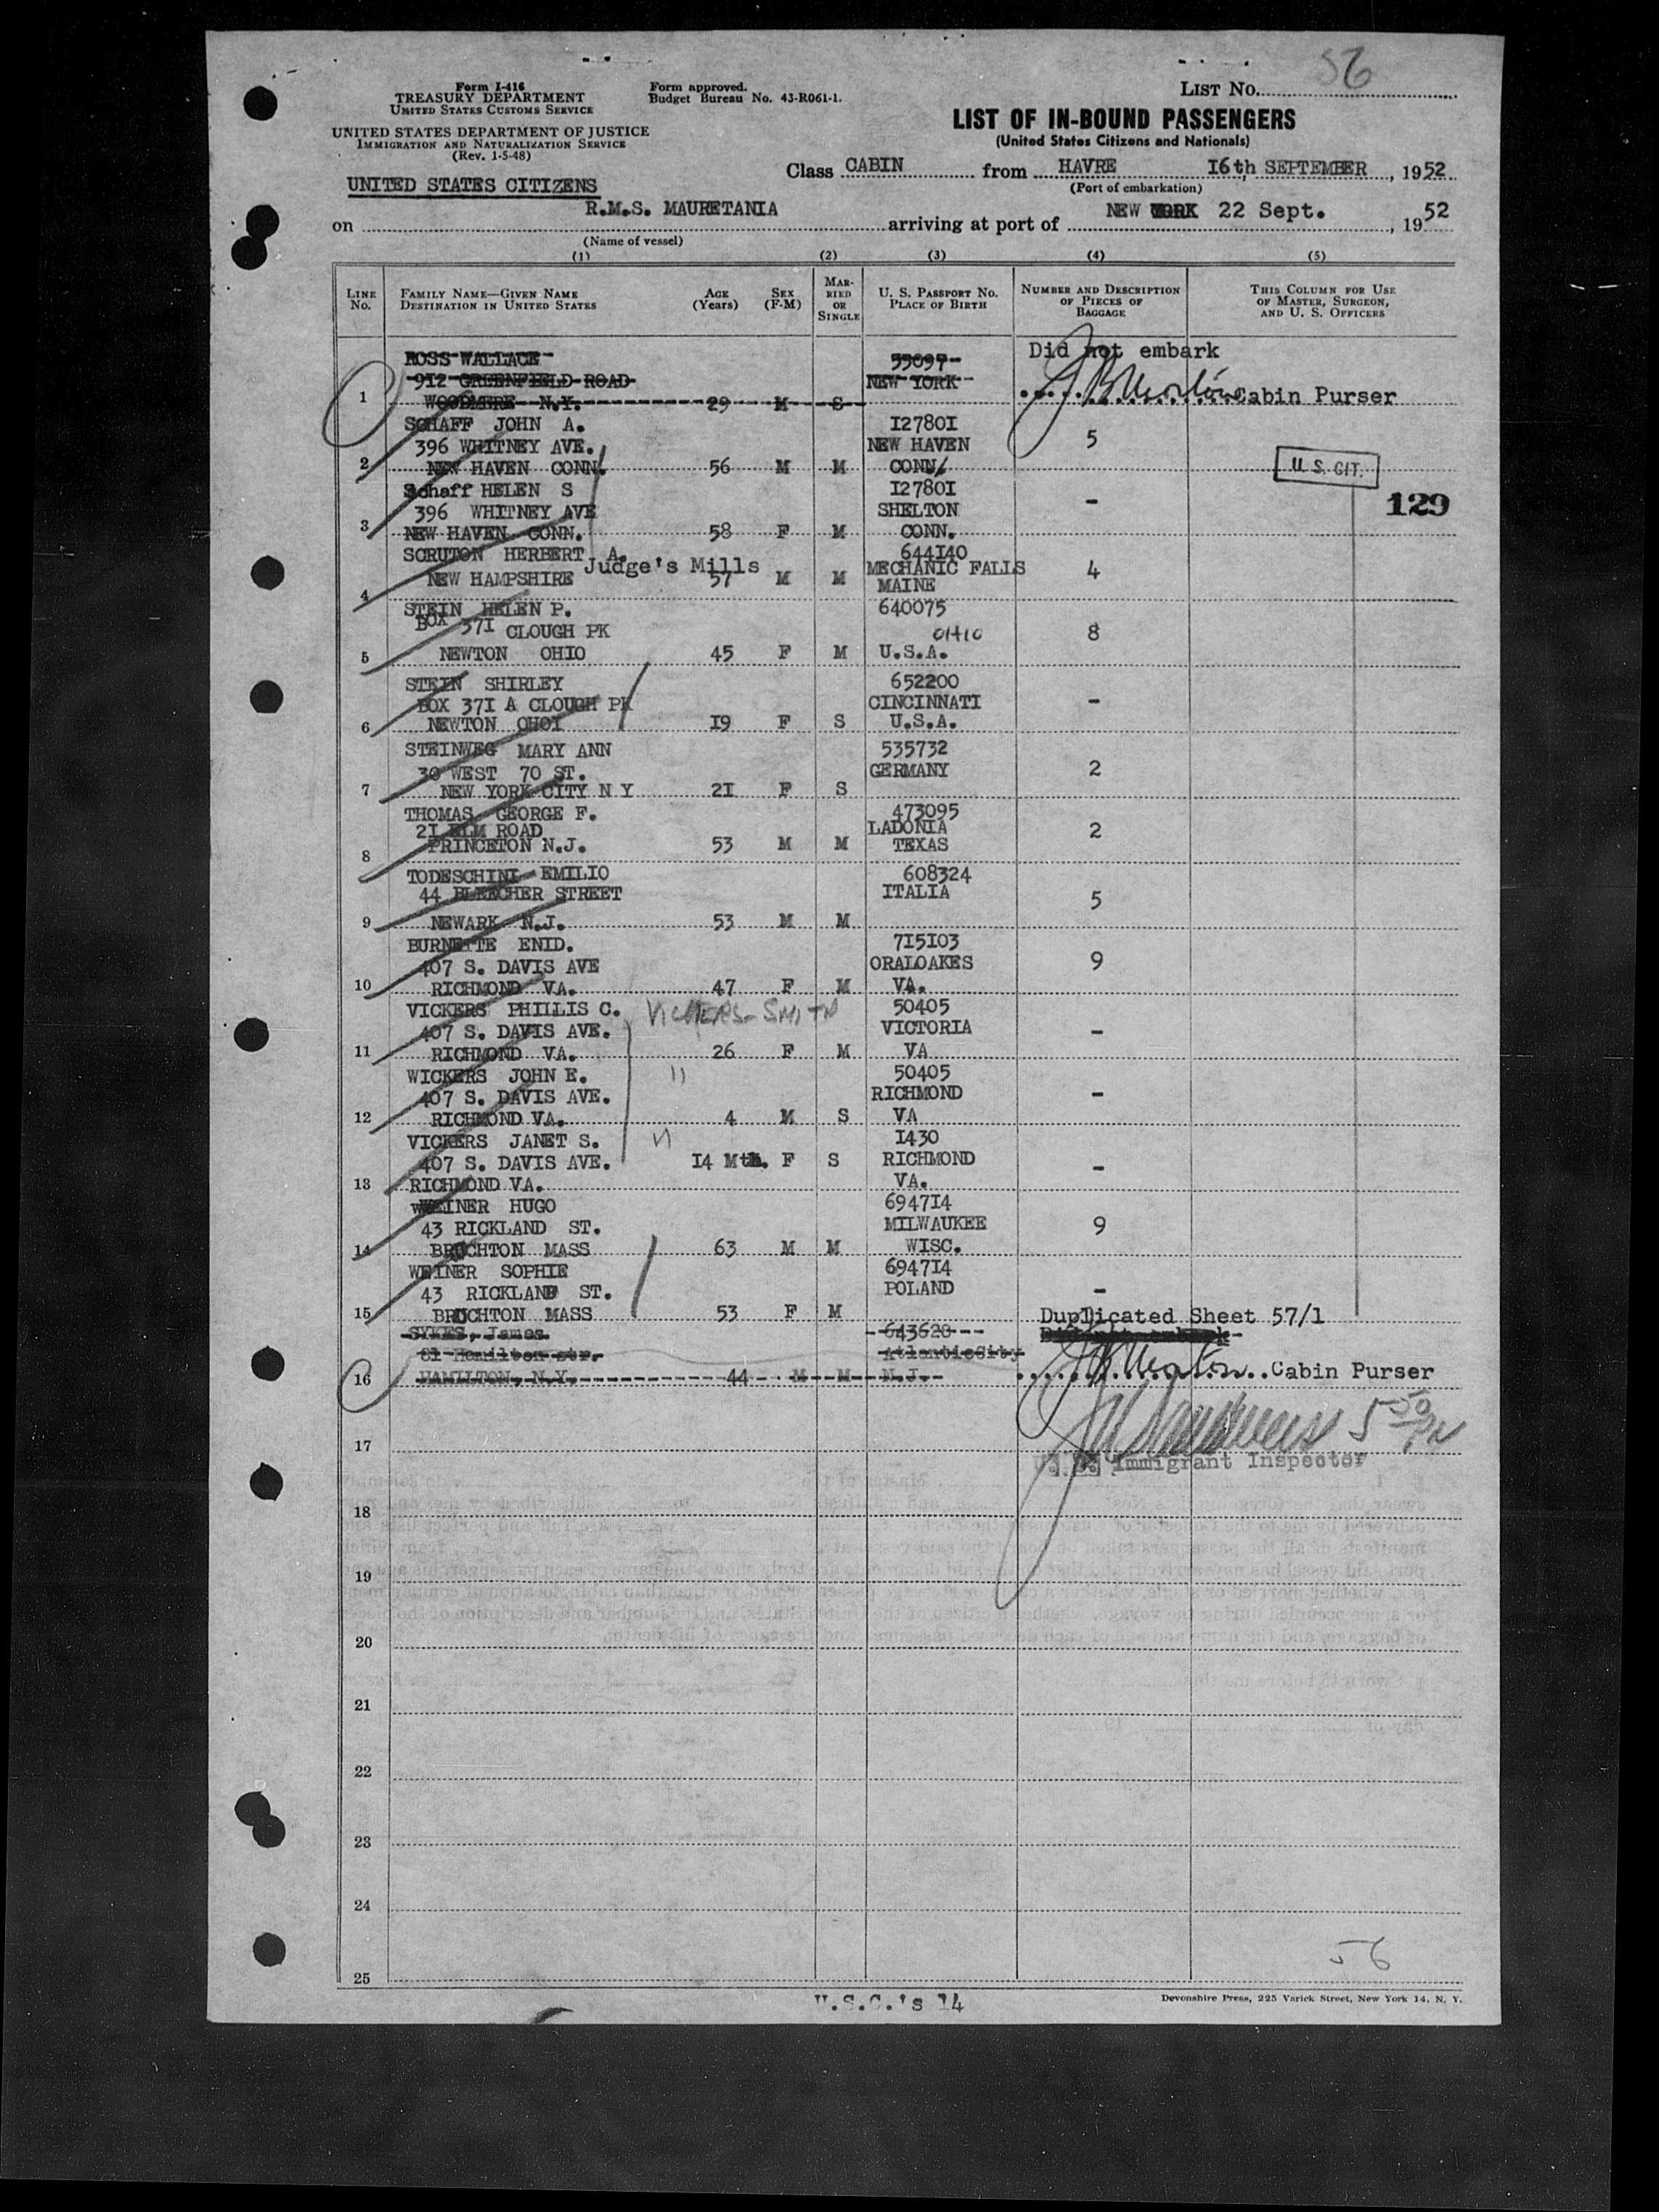 56
Form I-416
TREASURY DEPARTMENT
UNITED STATES CUSTOMS SERVICE
Form approved.
Budget Bureau No. 43-R061-1.
LIST No.
UNITED STATES DEPARTMENT OF JUSTICE
IMMIGRATION AND NATURALIZATION SERVICE
(Rev. 1-5-48)
LIST OF IN-BOUND PASSENGERS
(United States Citizens and Nationals)
UNITED STATES CITIZENS
Class CABIN from HAVRE 16th SEPTEMBER, 1952
(Port of embarkation)
on R.M.S. MAURETANIA arriving at port of NEW YORK 22 Sept., 1952
(Name of vessel)
(1) (2) (3) (4) (5)
LINE No.
FAMILY NAME—GIVEN NAME
DESTINATION IN UNITED STATES
AGE (Years)
SEX (F-M)
MARRIED OR SINGLE
U. S. PASSPORT No.
PLACE OF BIRTH
NUMBER AND DESCRIPTION OF PIECES OF BAGGAGE
THIS COLUMN FOR USE OF MASTER, SURGEON, AND U. S. OFFICERS
ROSS WALLACE 55097 Did not embark
912 GREENFIELD ROAD NEW YORK
1 WOODMERE N.Y. 29 M S Cabin Purser
SCHAFF JOHN A. I2780I
396 WHITNEY AVE. NEW HAVEN 5
2 NEW HAVEN CONN. 56 M M CONN. U. S. CIT.
Schaff HELEN S I2780I
396 WHITNEY AVE SHELTON - 129
3 NEW HAVEN CONN. 58 F M CONN.
SCRUTON HERBERT A. 644I40
Judge's Mills MECHANIC FALLS 4
4 NEW HAMPSHIRE 57 M M MAINE
STEIN HELEN P. 640075
BOX 37I CLOUGH PK OHIO 8
5 NEWTON OHIO 45 F M U.S.A.
STEIN SHIRLEY 652200
BOX 37I A CLOUGH PK CINCINNATI -
6 NEWTON OHOI I9 F S U.S.A.
STEINWEG MARY ANN 535732
30 WEST 70 ST. GERMANY 2
7 NEW YORK CITY N Y 2I F S
THOMAS GEORGE F. 473095
2I ELM ROAD LADONIA 2
8 PRINCETON N.J. 53 M M TEXAS
TODESCHINI EMILIO 608324
44 BLEECHER STREET ITALIA 5
9 NEWARK N.J. 53 M M
BURNETTE ENID. 7I5I03
407 S. DAVIS AVE ORALOAKES 9
10 RICHMOND VA. 47 F M VA.
VICKERS PHILLIS C. VICKERS-SMITH 50405
407 S. DAVIS AVE. VICTORIA -
11 RICHMOND VA. 26 F M VA
WICKERS JOHN E. " 50405
407 S. DAVIS AVE. RICHMOND -
12 RICHMOND VA. 4 M S VA
VICKERS JANET S. " I430
407 S. DAVIS AVE. I4 Mth. F S RICHMOND -
13 RICHMOND VA. VA.
WEINER HUGO 6947I4
43 RICKLAND ST. MILWAUKEE 9
14 BROCHTON MASS 63 M M WISC.
WEINER SOPHIE 6947I4
43 RICKLAND ST. POLAND -
15 BROCHTON MASS 53 F M Duplicated Sheet 57/1
SYKES, James 643620
81 Hamilton str. AtlanticCity
16 HAMILTON, N.Y. 44 M M N.J. Cabin Purser
5 50 PM
17
U. S. Immigrant Inspector
18
19
20
21
22
23
24
56
25
U.S.C.'s 14
Devonshire Press, 225 Varick Street, New York 14, N. Y.